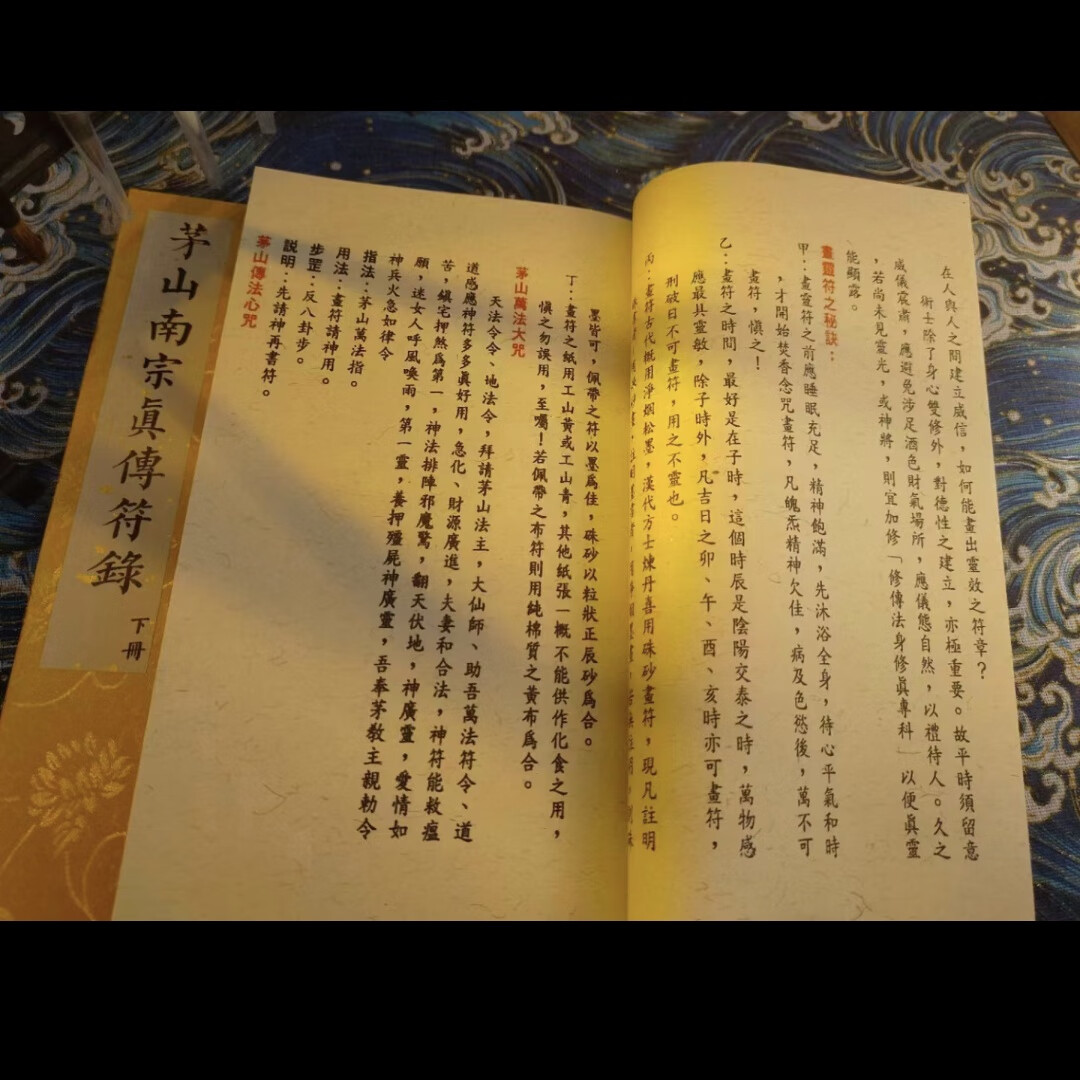 在人與人之間建立威信，如何能畫出靈效之符章？
術士除了身心雙修外，對德性之建立，亦極重要。故平時須留意
威儀宸肅，應避免涉足酒色財氣場所，應儀態自然，以禮待人。久之
，若尚未見靈光，或神將，則宜加修「修傳法身修眞專科」以便眞靈
能顯露。
畫靈符之秘訣：
甲：畫靈符之前應睡眠充足，精神飽滿，先沐浴全身，待心平氣和時
，才開始焚香念咒畫符，凡魄炁精神欠佳，病及色慾後，萬不可
畫符，慎之！
乙：畫符之時間，最好是在子時，這個時辰是陰陽交泰之時，萬物感
應最具靈敏，除子時外，凡吉日之卯、午、酉、亥時亦可畫符，
刑破日不可畫符，用之不靈也。
丙：畫符古代概用淨烟松墨，漢代方士煉丹喜用硃砂畫符，現凡註明
墨皆可，佩帶之符以墨爲佳，硃砂以粒狀正辰砂爲合。
丁：畫符之紙用工山黄或工山青，其他紙張一概不能供作化食之用，
慎之勿誤用，至囑！若佩帶之布符則用純棉質之黄布爲合。
茅山萬法大咒
天法令令、地法令，拜請茅山法主，大仙師、助吾萬法符令、道
道感應神符多多眞好用，急化、財源廣進，夫妻和合法，神符能救瘟
苦，鎭宅押煞爲第一，神法排陣邪魔驚，翻天伏地，神廣靈，愛情如
願，迷女人呼風喚雨，第一靈，養押殭屍神廣靈，吾奉茅教主親勅令
神兵火急如律令
指法：茅山萬法指。
用法：畫符請神用。
步罡：反八卦步。
説明：先請神再書符。
茅山傳法心咒
茅山南宗眞傳符錄
下冊